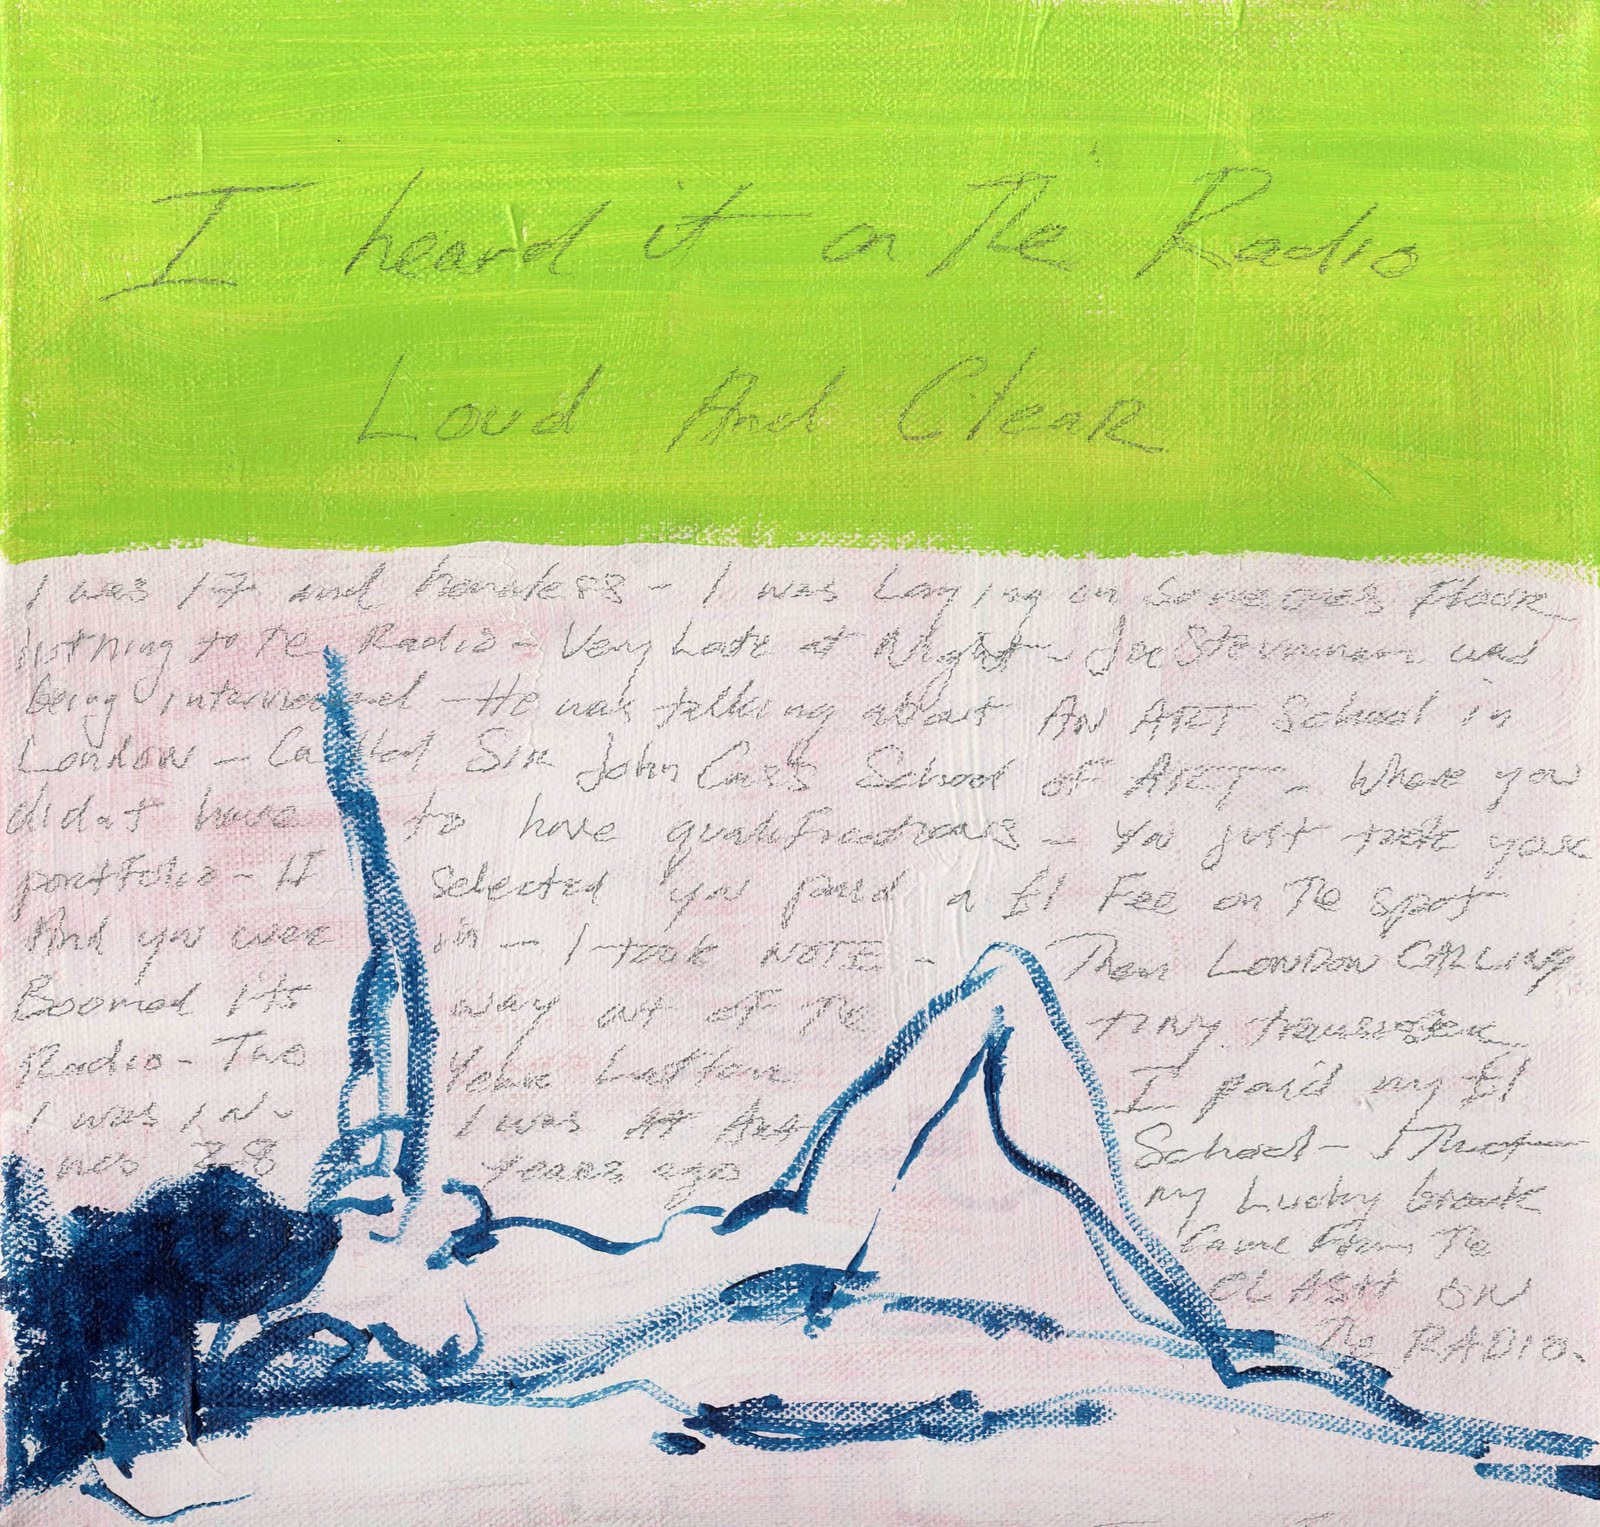 I heard it on The Radio
Loud And Clear
I was 17 and homeless - I was Laying on someones Floor
listning to The Radio - Very Late at Night - Joe Strummer was
being interviewed - He was talking about AN ART School in
London - Called Sir John Cass School of ART - Where you
didnt have to have qualifications - You just took your
portfolio - If selected you paid a £1 Fee on The spot
And you were in - I took NOTE - Then LONDON CALLING
Boomed its way out of The tiny transistor
Radio - Two Years Later I paid my £1
I was IN - I was At Art School - That
was 38 years ago my Lucky break
Came From The
CLASH ON
The RADIO.